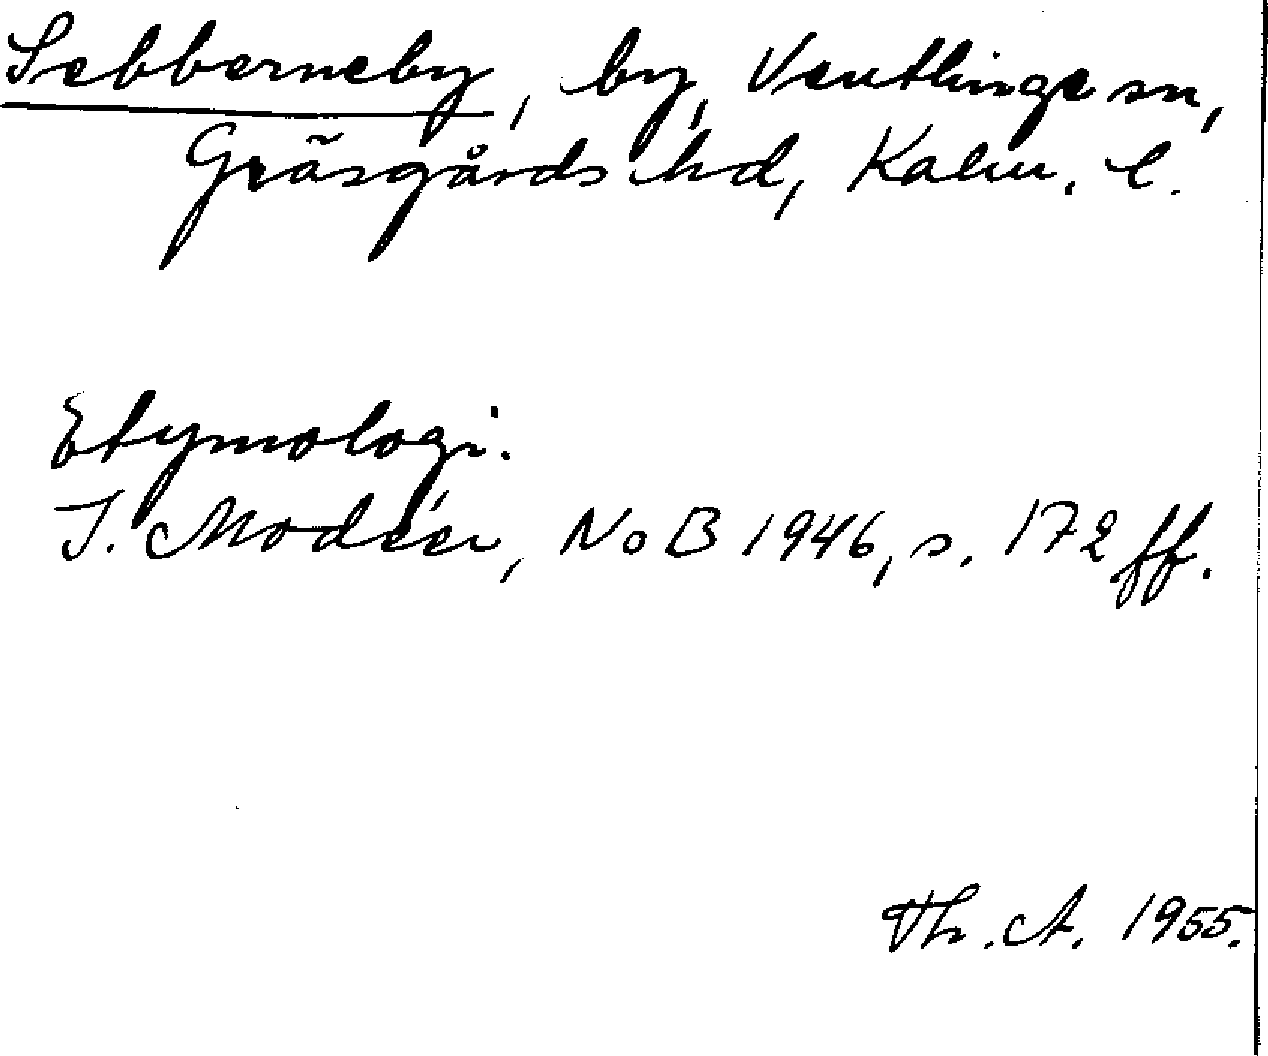 Sebberneby, by, Ventlinge sn,
Gräsgårds hd, Kalm. l.
Etymologi.
I. Modéer, NoB 1946, s. 172 ff.
Th. A. 1955.